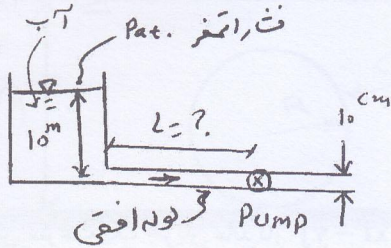 آب
Pat. فشار اتمسفر
10 m
L = ?
10 cm
لوله افقی
Pump